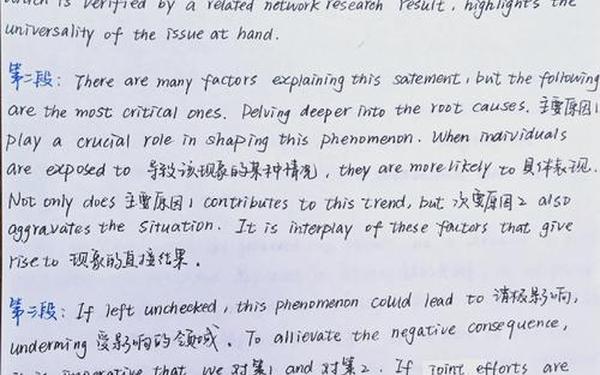 which is verified by a related network research result, highlights the
universality of the issue at hand.
第二段: There are many factors explaining this satement, but the following
are the most critical ones. Delving deeper into the root causes. 主要原因1
play a crucial role in shaping this phenomenon. When individuals
are exposed to 导致该现象的某种情况, they are more likely to 具体表现.
Not only does 主要原因1 contributes to this trend, but 次要原因2 also
aggravates the situation. It is interplay of these factors that give
rise to 现象的直接结果.
第三段: If left unchecked, this phenomenon could lead to 消极影响,
underming 受影响的领域. To allievate the negative consequence,
it is imperative that we 对策1 and 对策2. If joint efforts are